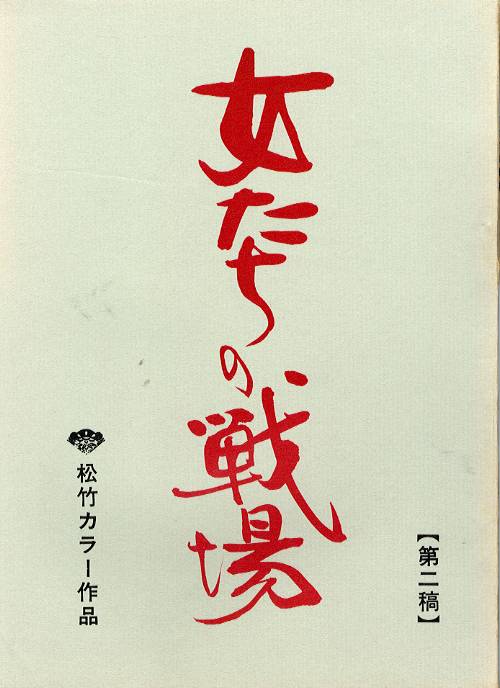 【第二稿】
女たちの戦場
松竹カラー作品